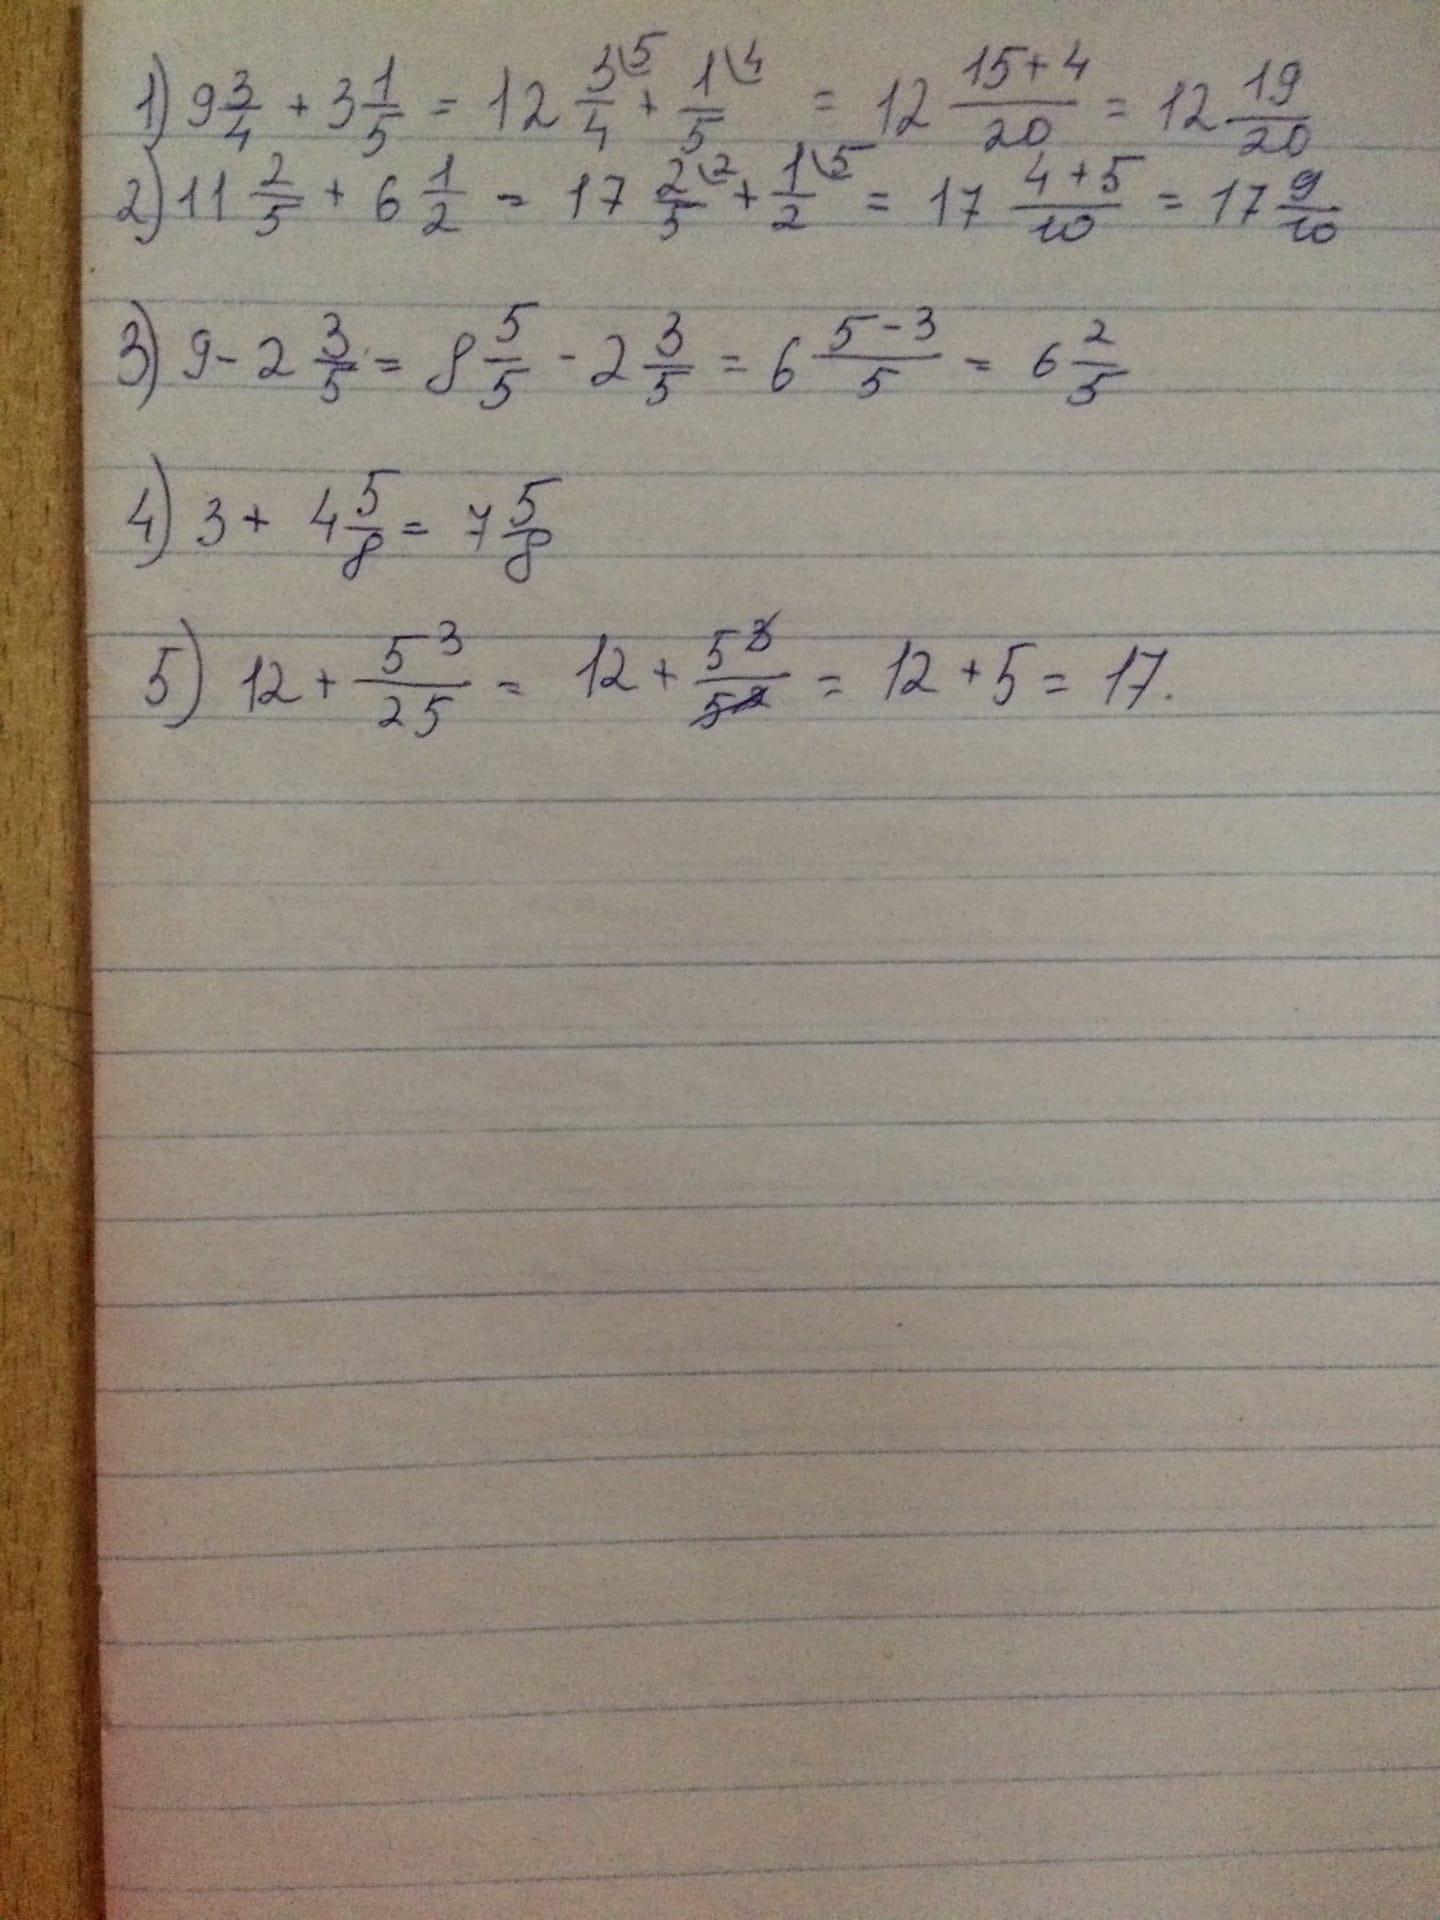 1) 9 3/4 + 3 1/5 = 12 3\5/4 + 1\4/5 = 12 15+4/20 = 12 19/20
2) 11 2/5 + 6 1/2 = 17 2\2/5 + 1\5/2 = 17 4+5/10 = 17 9/10
3) 9 - 2 3/5 = 8 5/5 - 2 3/5 = 6 5-3/5 = 6 2/5
4) 3 + 4 5/8 = 7 5/8
5) 12 + 5³/25 = 12 + 5³/5² = 12 + 5 = 17.